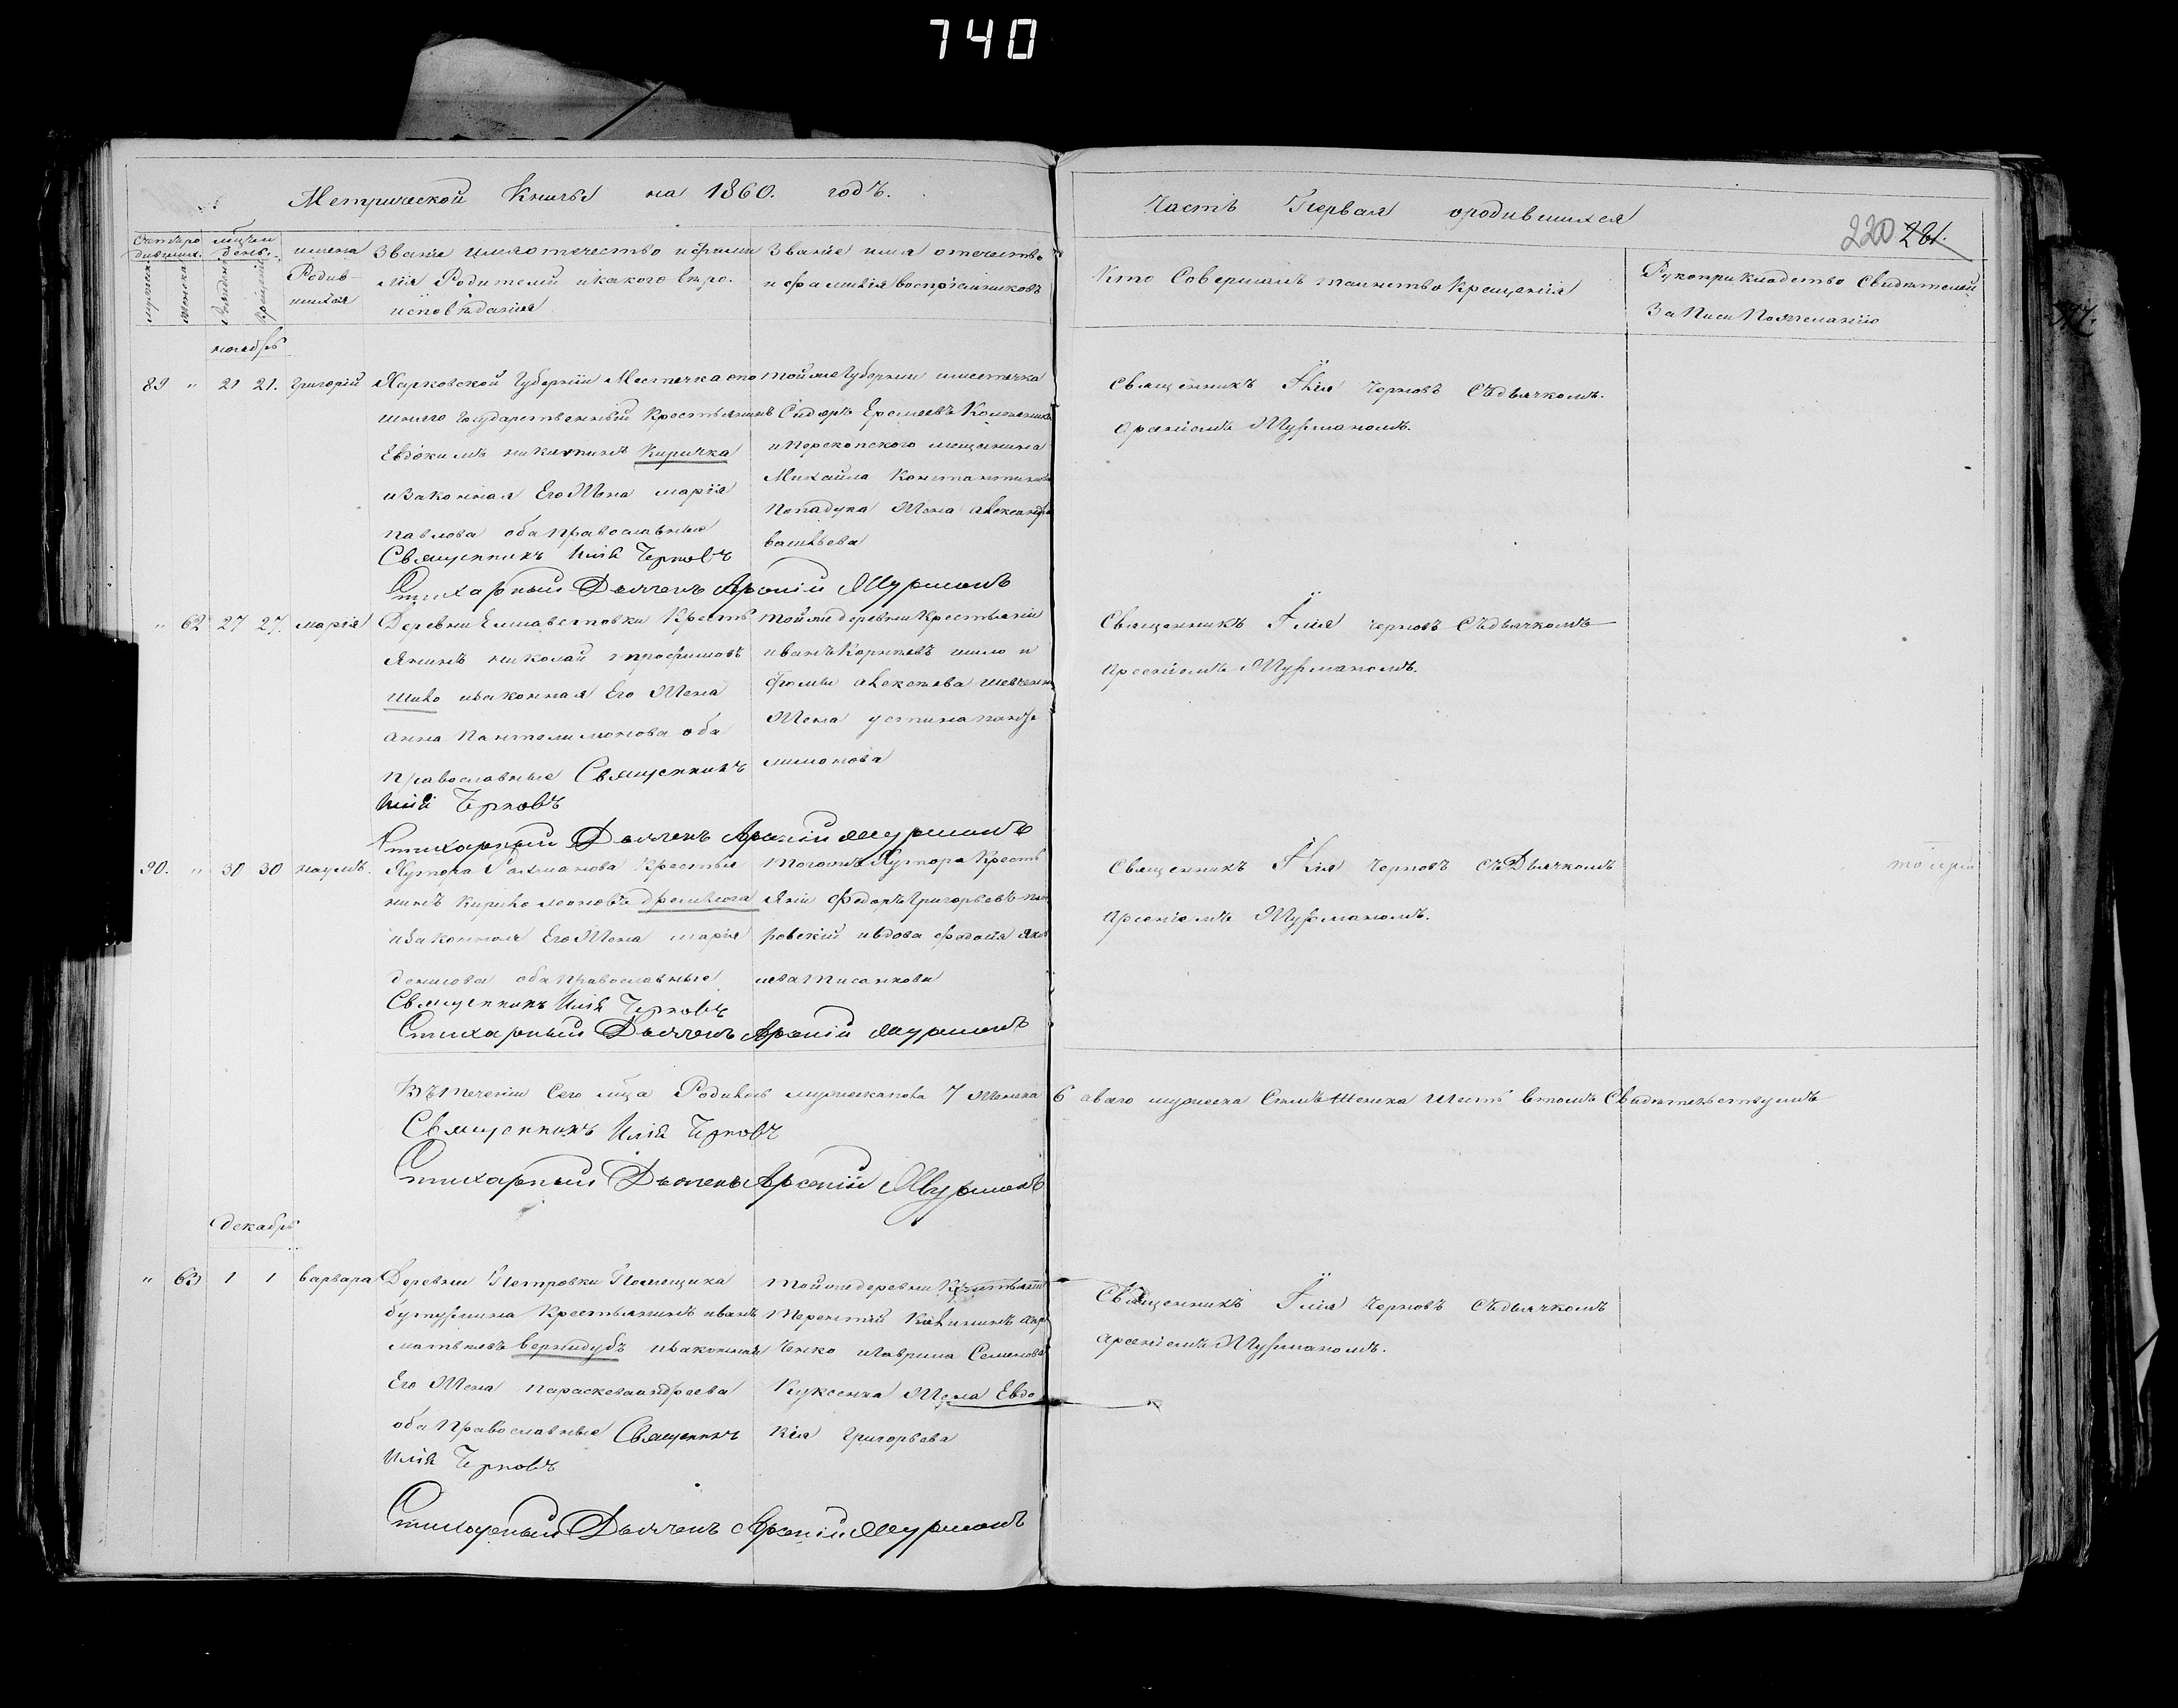 740
Метрической Книги на 1860. годъ.
Часть Первая ородившихся
220 281.
Счетъ родившихся.
мужеска
женска
мѣсяцъ и день.
Рожденія
Крещенія
имена Родившихся
Званіе имя отечество и фамилія Родителей и какого вѣроисповѣданія
Званіе имя отечество и фамилія воспріемниковъ
Кто Совершалъ таинство Крещенія
Рукоприкладство Свидѣтелей
Записи По желанію
ноябрь
89 " 21 21. Григорій
Харковской Губерніи Местечка опо
шняго Государственный Крестьянинъ
Евдокимъ никитинъ Киричка
и Законная Его Жена марія
павлова оба православные
Священникъ Илія Черновъ
Стихарный Дьячекъ Арсеній Мурманъ
тойже Губерніи иместечка
Сидоръ Еремеевъ
и Перекопского мещанина
Михаила Константинова
Попадука Жена александра
васильева
Священникъ Илія Черновъ Съдьячкомъ.
Арсеніемъ Мурманомъ.
" 62 27 27. марія
Деревни Елисаветовки Кресть
янинъ николай трофимовъ
шило изаконная Его Жена
анна Пантелимонова оба
православные Священникъ
Илія Черновъ
Стихарный Дьячекъ Арсеній Мурманъ
тойже деревни Крестьяни
иванъ Корнѣевъ шило и
фомы алексѣева шевченка
Жена устина панте
лимонова
Священникъ Илія Черновъ Съдьячкомъ
Арсеніемъ Мурманомъ.
90. " 30 30 наумъ.
Хутора Рахманова Крестья
нинъ Кирило леоновъ
изаконная Его Жена марія
денисова оба православные
Священникъ Илія Черновъ
Стихарный Дьячекъ Арсеній Мурманъ
тогожъ Хутора Кресть
яни Федоръ Григорьевъ
ровскій ивдова
Священникъ Илія Черновъ съДьячкомъ
Арсеніемъ Мурманомъ.
Въ теченіи Сего мѣсяца Родилось мужескапола 7 Женска 6 аваго мужеска Семь Женска Шесть вчомъ Свидѣтельствуемъ
Священникъ Илія Черновъ
Стихарный Дьячекъ Арсеній Мурманъ
декабрь
" 63 1 1 варвара
Деревни Петровки Помещика
бутурлина Крестьянинъ иванъ
матвѣевъ вернидубъ изаконная
Его Жена параскева андреева
оба Православные Священникъ
Илія Черновъ
Стихарный Дьячекъ Арсеній Мурманъ
тойже деревни Крестьяни
Терентій
ченко игаврила Семенова
Куксенка Жена Евдо
кія Григорьева
Священникъ Илія Черновъ Съдьячкомъ
Арсеніемъ Мурманомъ.